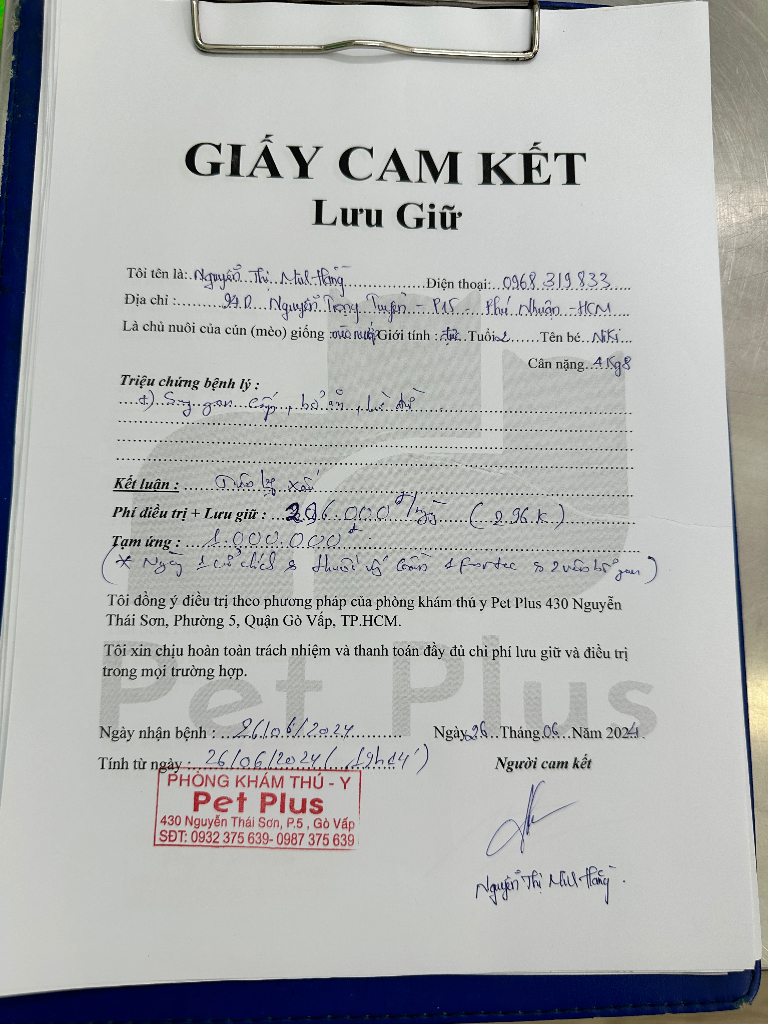 GIẤY CAM KẾT
Lưu Giữ
Tôi tên là: Nguyễn Thị Minh Hằng Điện thoại: 0968 319 833
Địa chỉ : Nguyễn Trọng Tuyển - P15 - Phú Nhuận - HCM
Là chủ nuôi của cún (mèo) giống Giới tính : đực Tuổi 2 Tên bé Niki
Cân nặng 4Kg8
Triệu chứng bệnh lý :
+) Suy gan cấp, bỏ ăn, lừ đừ
Kết luận : Tiên lượng xấu
Phí điều trị + Lưu giữ : 296.000đ/ngày (296K)
Tạm ứng : 1.000.000đ
(* Ngày 1 cử chích & thuốc 1 fortec & 2 viên bổ gan)
Tôi đồng ý điều trị theo phương pháp của phòng khám thú y Pet Plus 430 Nguyễn
Thái Sơn, Phường 5, Quận Gò Vấp, TP.HCM.
Tôi xin chịu hoàn toàn trách nhiệm và thanh toán đầy đủ chi phí lưu giữ và điều trị
trong mọi trường hợp.
Pet Plus
Ngày nhận bệnh : 26/06/2024 Ngày 26 Tháng 06 Năm 2024
Tính từ ngày : 26/06/2024 (19h14') Người cam kết
PHÒNG KHÁM THÚ - Y
Pet Plus
430 Nguyễn Thái Sơn, P.5 , Gò Vấp
SĐT: 0932 375 639- 0987 375 639
Nguyễn Thị Minh Hằng